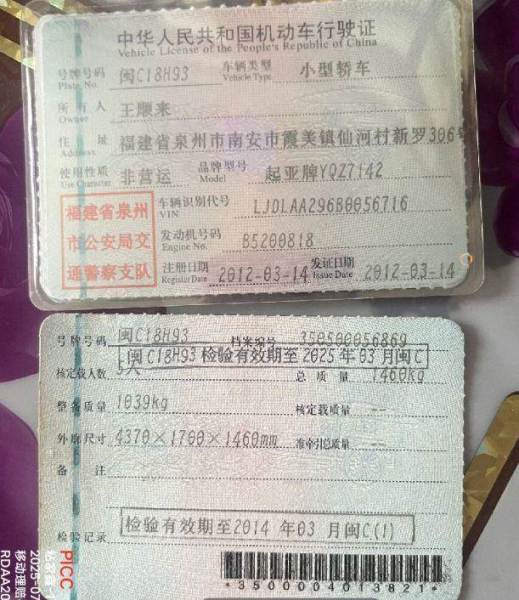 中华人民共和国机动车行驶证
Vehicle License of the People's Republic of China
号牌号码 闽C18H93 车辆类型 小型轿车
Plate No. Vehicle Type
所有人 王顺来
Owner
住址 福建省泉州市南安市霞美镇仙河村新罗306号
Address
使用性质 非营运 品牌型号 起亚牌YQZ7142
Use Character Model
福建省泉州
市公安局交
通警察支队
车辆识别代号 LJDLAA296B0056716
VIN
发动机号码 B5200818
Engine No.
注册日期 2012-03-14 发证日期 2012-03-14
Register Date Issue Date
号牌号码 闽C18H93 档案编号 350500056869
闽C18H93检验有效期至2025年03月闽C
核定载人数 5人 总质量 1460kg
整备质量 1039kg 核定载质量 --
外廓尺寸 4370×1700×1460mm 准牵引总质量 --
备注
检验记录 检验有效期至2014年03月闽C(1)
*3500004013821*
PICC
2025-07
移动理赔
RDAA20